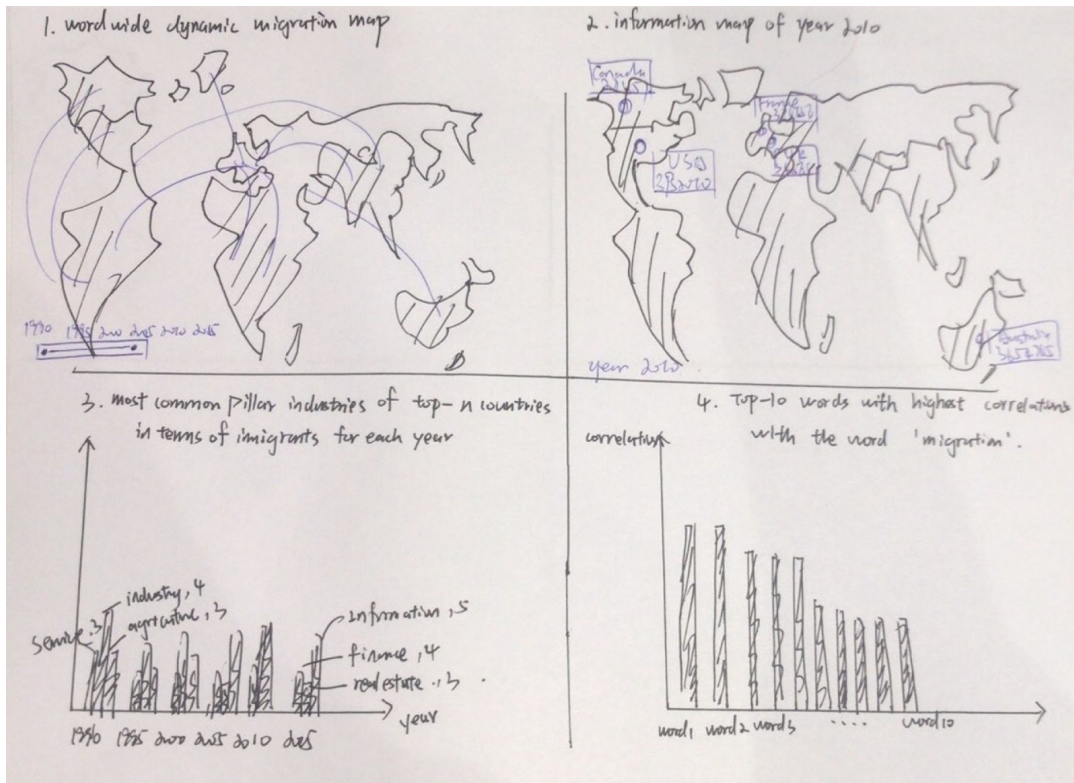 1. wordwide dynamic migration map
1990 1995 2000 2005 2010 2015
2. information map of year 2010
Canada
France
USA
Australia
year 2010.
3. most common pillar industries of top-n countries
in terms of imigrants for each year
service, 3
industry, 4
agriculture, 3
information, 5
finance, 4
real estate, 3
year
1990 1995 2000 2005 2010 2015
4. Top-10 words with highest correlations
with the word 'migration'.
correlation
word1 word2 word3 .... word10